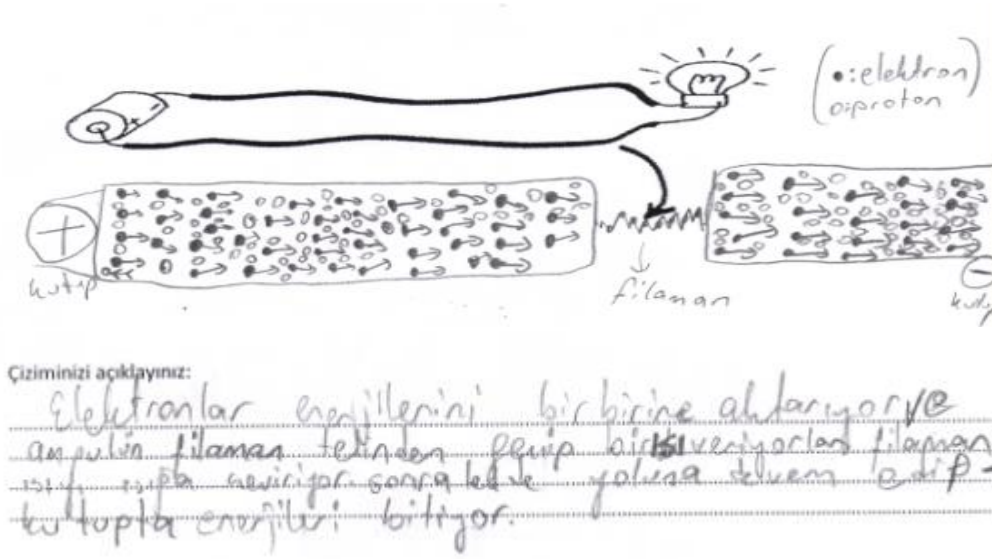 ●:elektron
o:proton
+
kutup
filaman
−
Çiziminizi açıklayınız:
Elektronlar enerjilerini birbirine aktarıyor ve
ampulün filaman telinden geçip ısı veriyorlar filaman
ısıyı ışığa çeviriyor sonra yoluna devam edip -
kutupta enerjileri bitiyor.